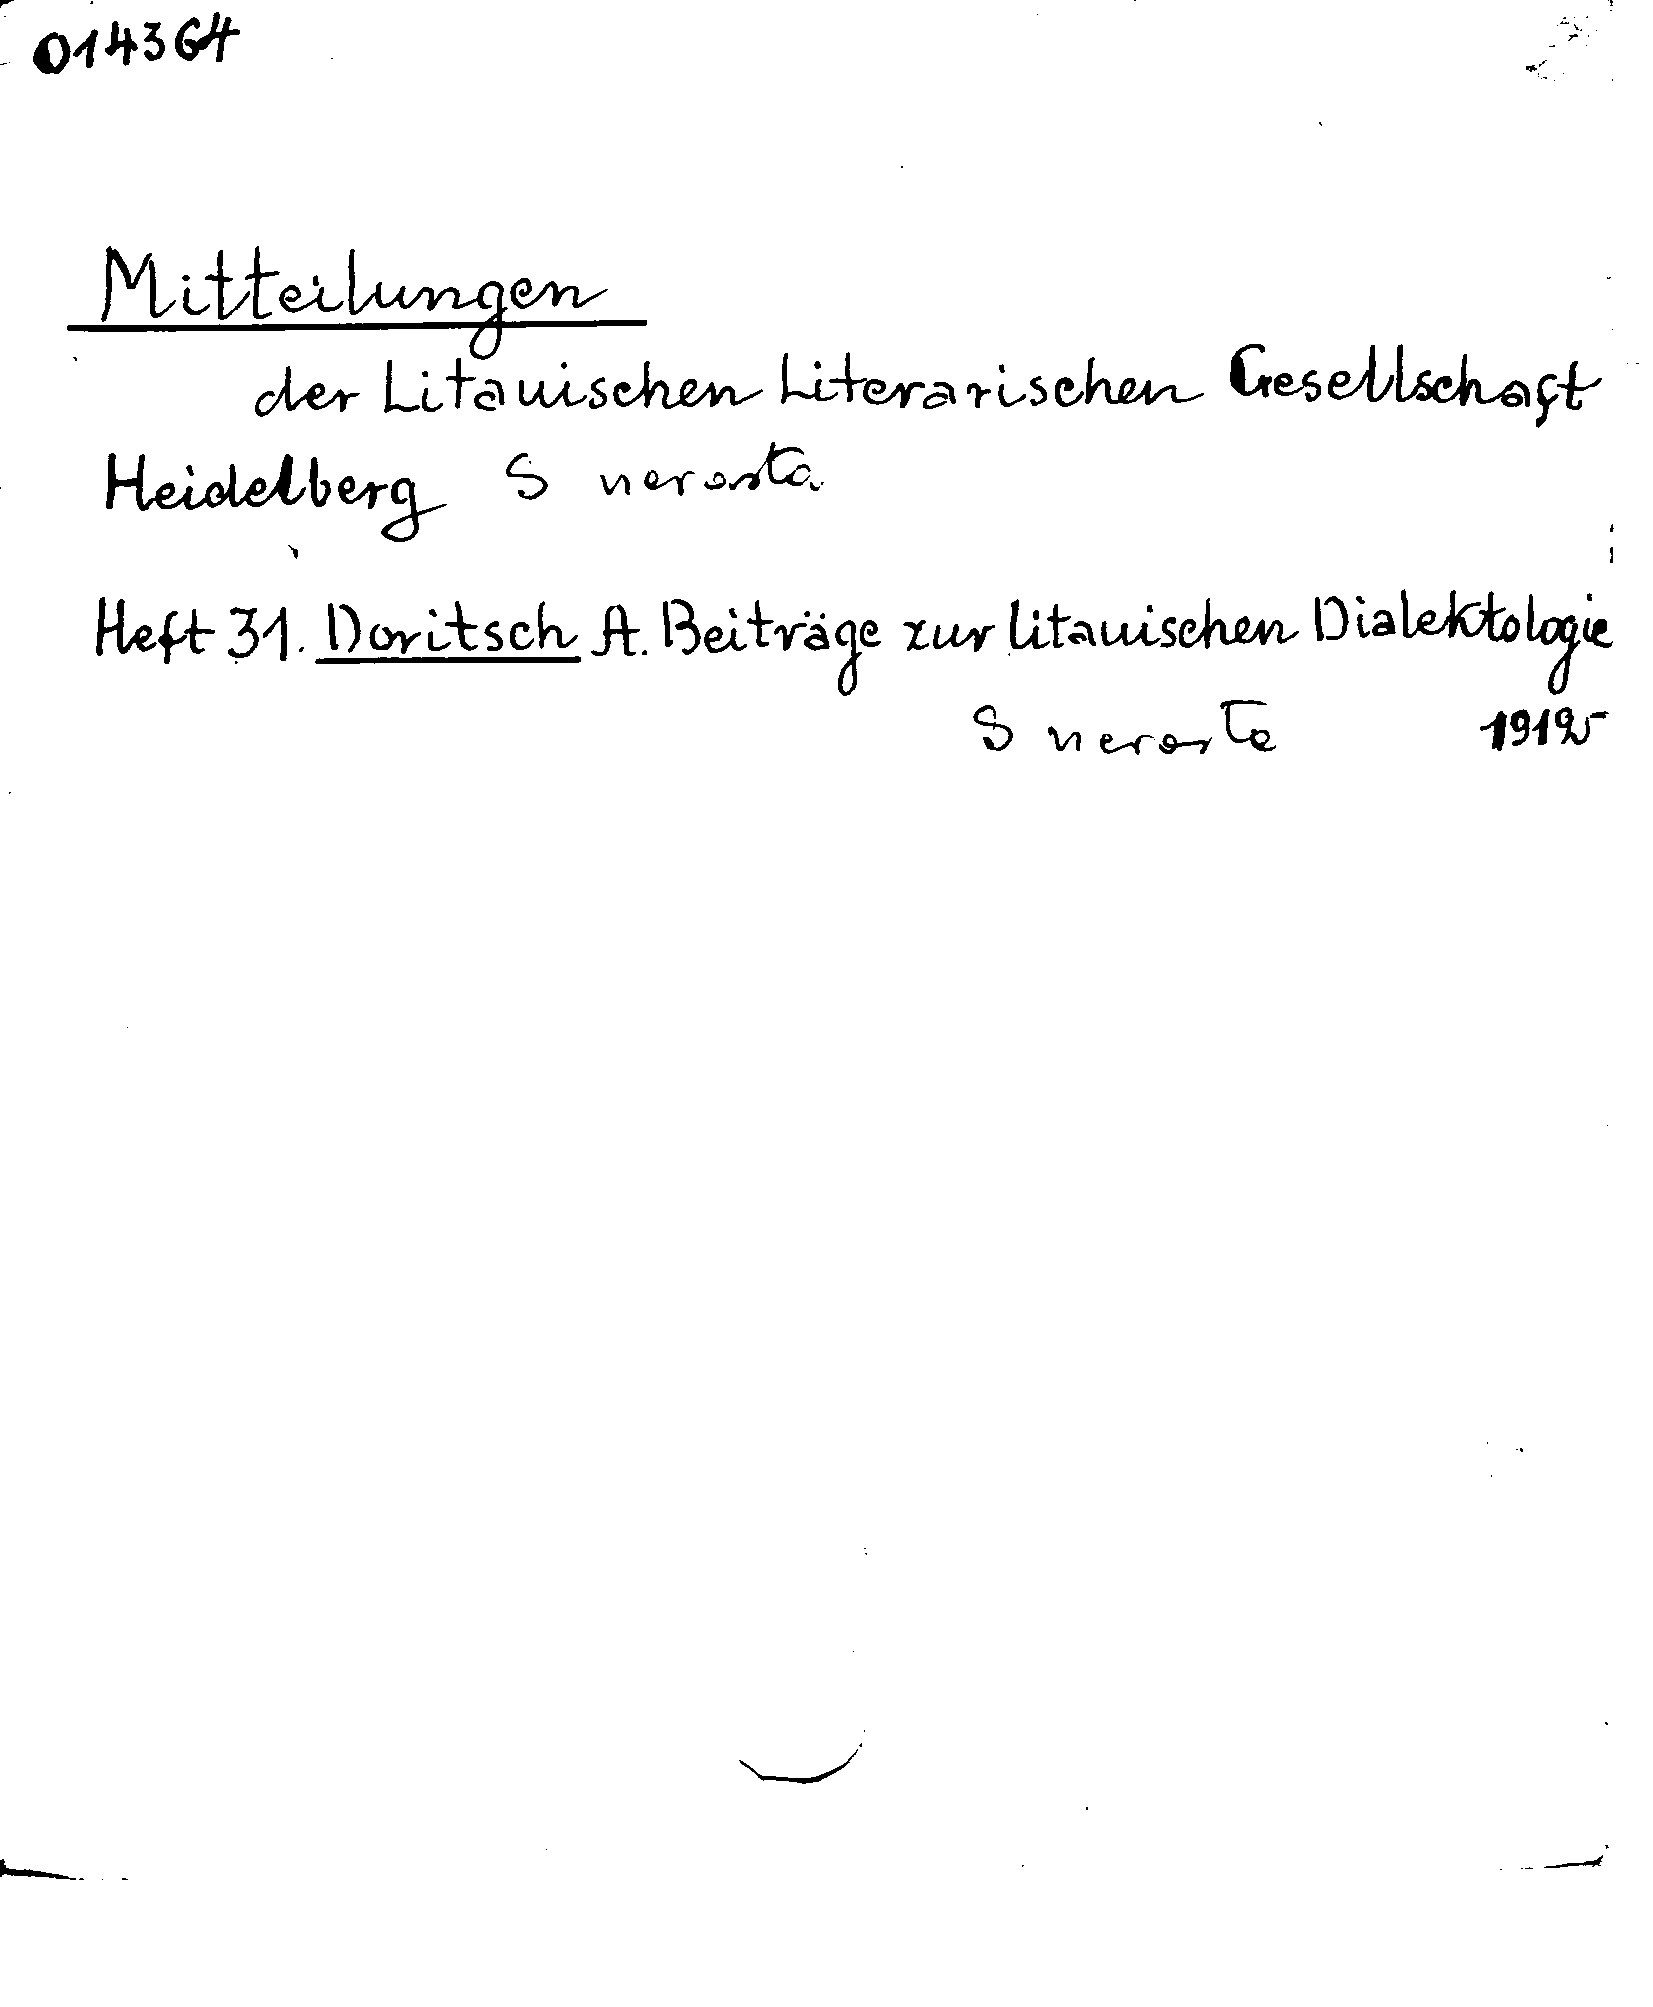 014364
Mitteilungen
der Litauischen Literarischen Gesellschaft
Heidelberg S nerasta
Heft 31. Doritsch A. Beiträge zur litauischen Dialektologie
S nerasta 1912